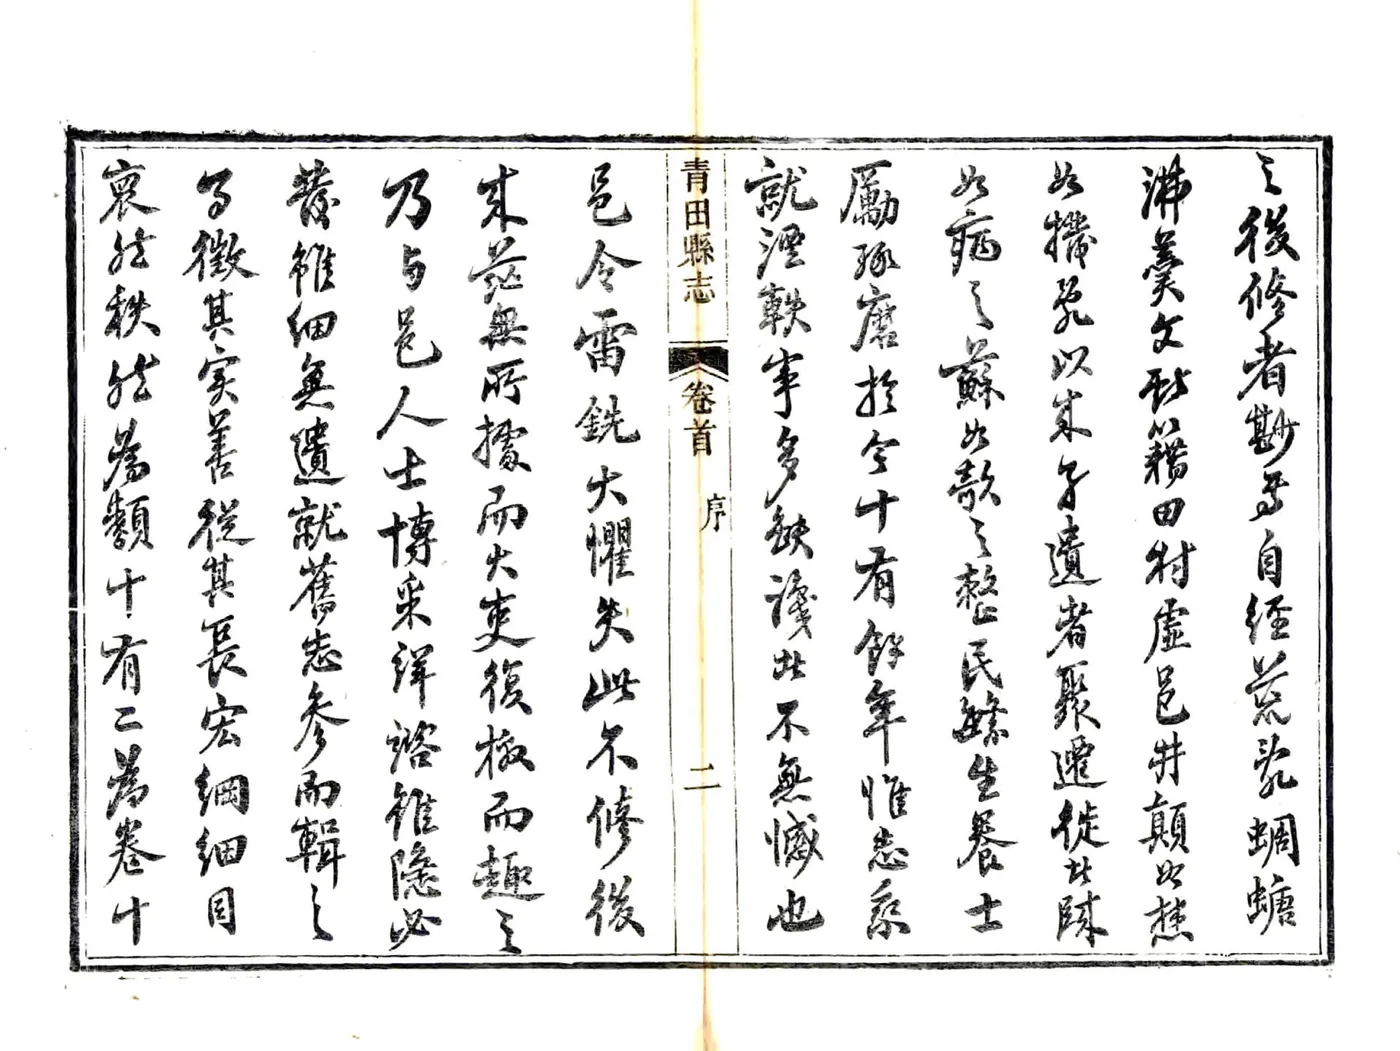 之後修者尠焉自經荒亂蜩螗
沸羹文獻籍田村虛邑井顛如樵
如撥亂以來孑遺者聚遷徙者歸
如病之蘇如欹之整民蕃生養士
勵琢磨於今十有餘年惟志乘
就湮軼事多缺識者不無憾也
邑令雷銑大懼失此不修後
來茲無所據而大吏復檄而趣之
乃与邑人士博采詳諮雖隱必
發雖細無遺就舊志參而輯之
而徵其實善從其長宏綱細目
裒然秩然為類十有二為卷十
青田縣志
卷首
序
二